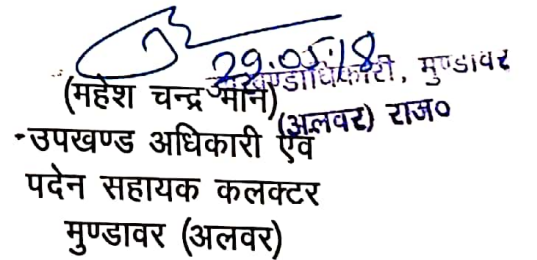 29.05.18
उपखण्डाधिकारी, मुण्डावर
(अलवर) राज०
(महेश चन्द्र मान)
उपखण्ड अधिकारी एवं
पदेन सहायक कलक्टर
मुण्डावर (अलवर)